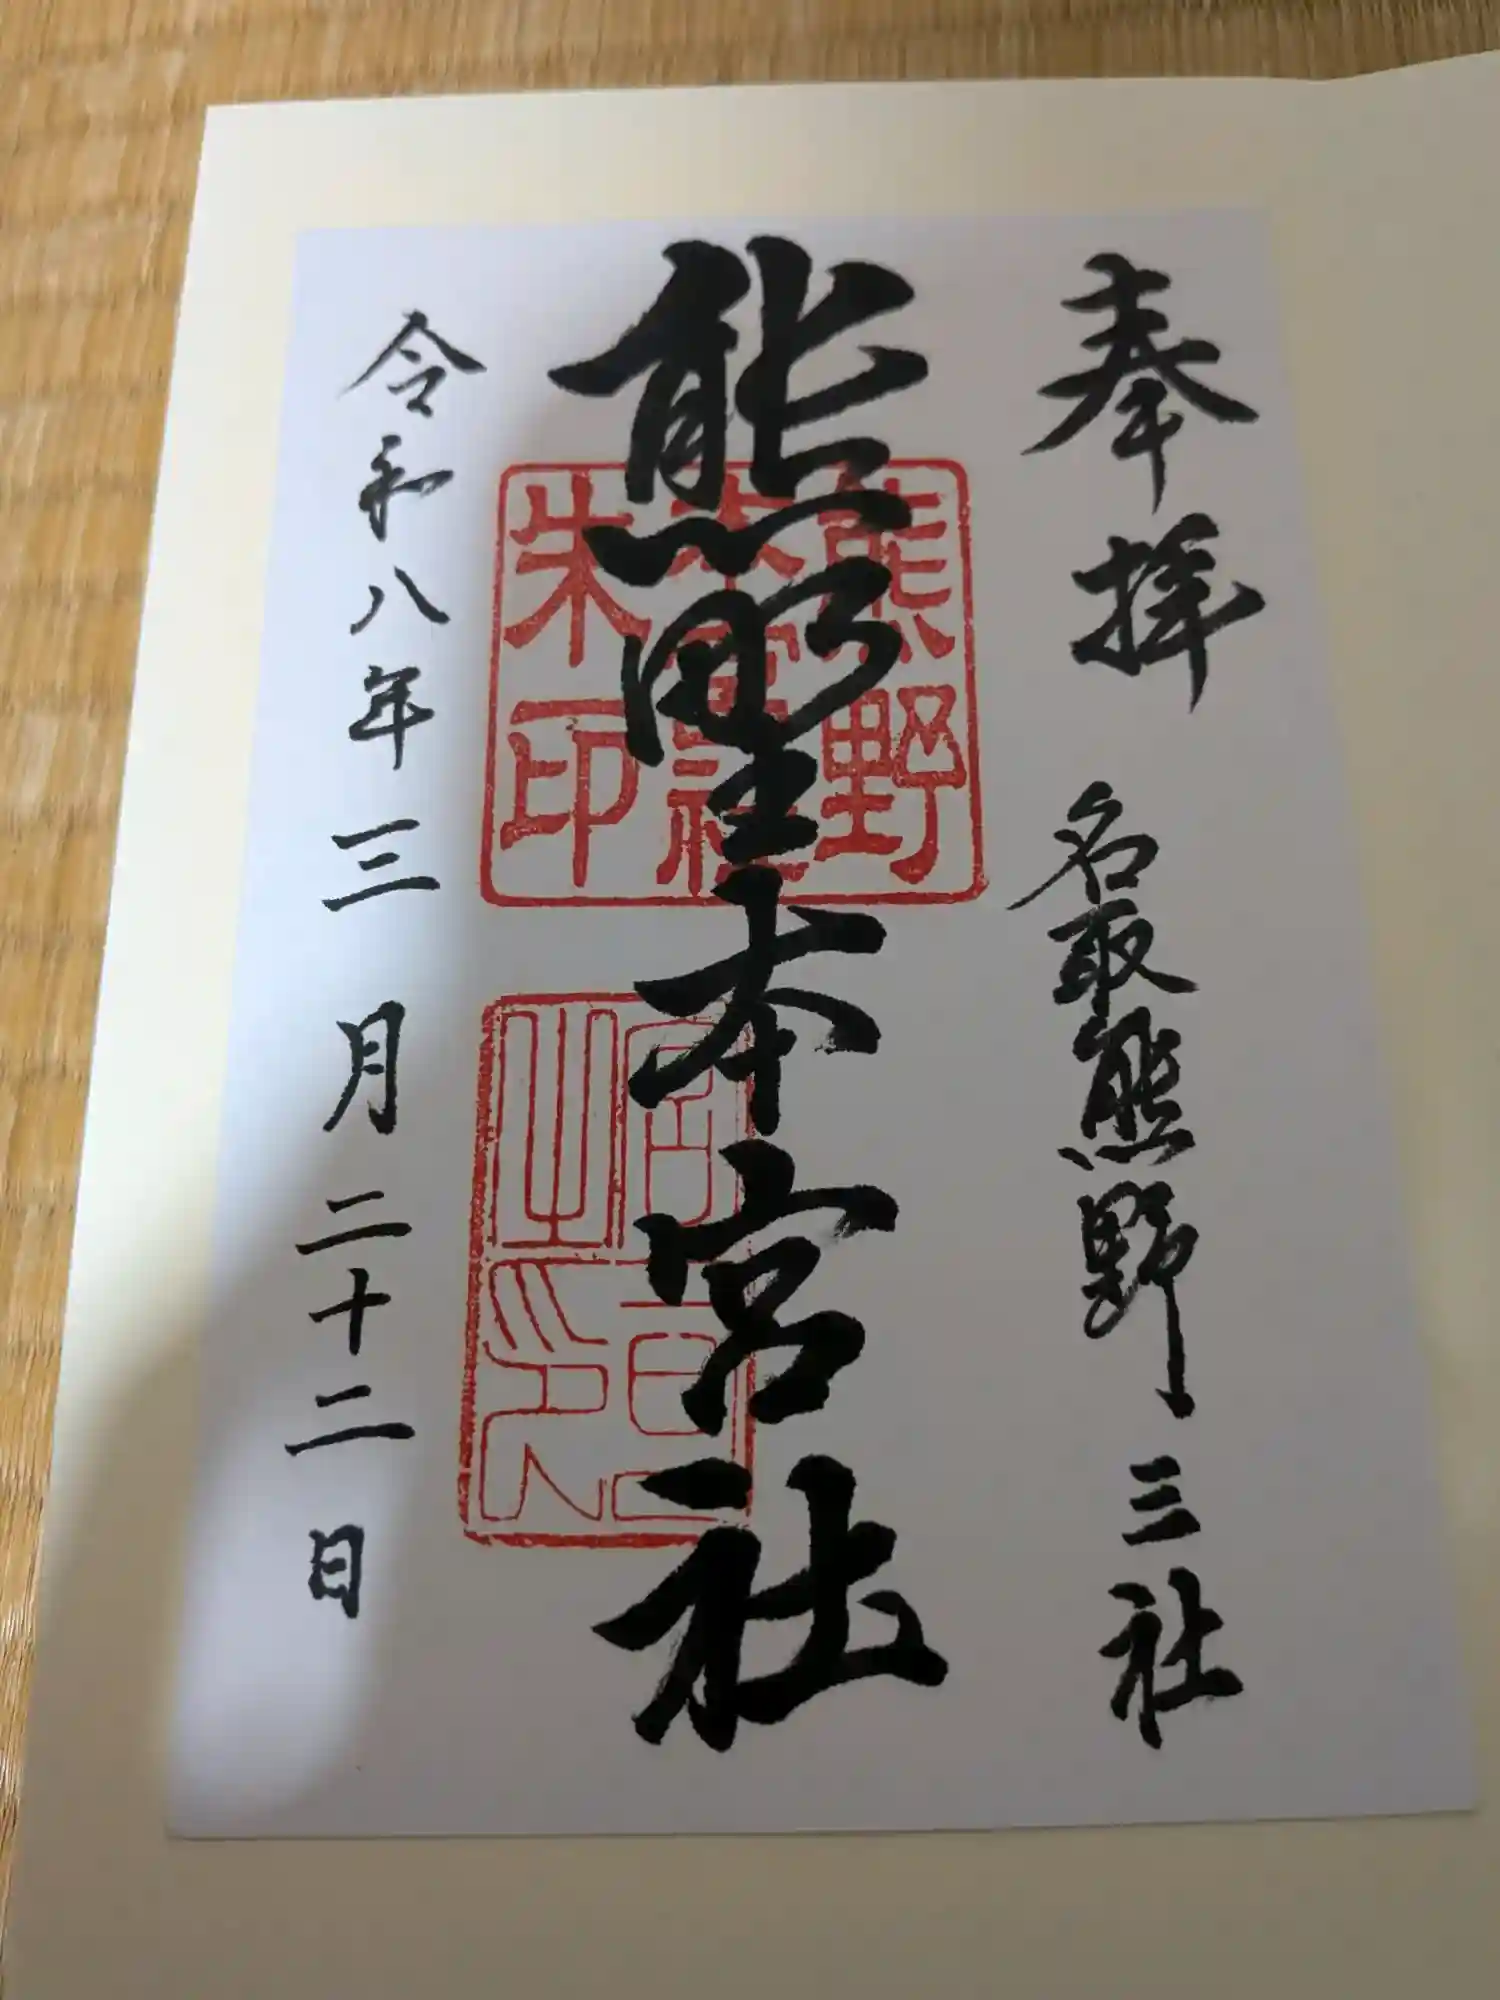 奉拝 名取熊野三社
熊野本宮社
令和八年三月二十二日
熊野
本宮社
朱印
宮司
之印